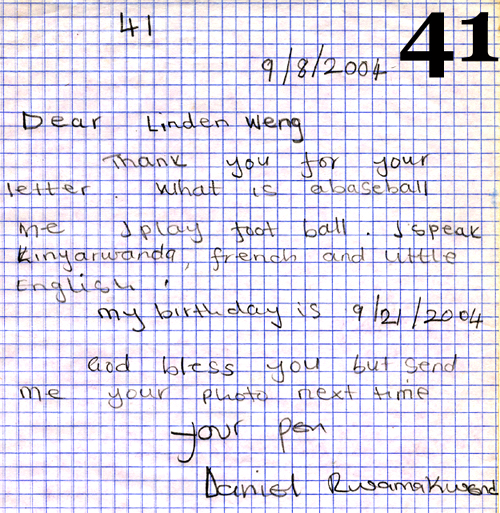 41
41
9/8/2004
Dear Linden Weng
Thank you for your
letter. What is abaseball
me I play foot ball. I speak
Kinyarwanda, french and little
English.
my birthday is 9/21/2004
God bless you but send
me your photo next time
your pen
Daniel